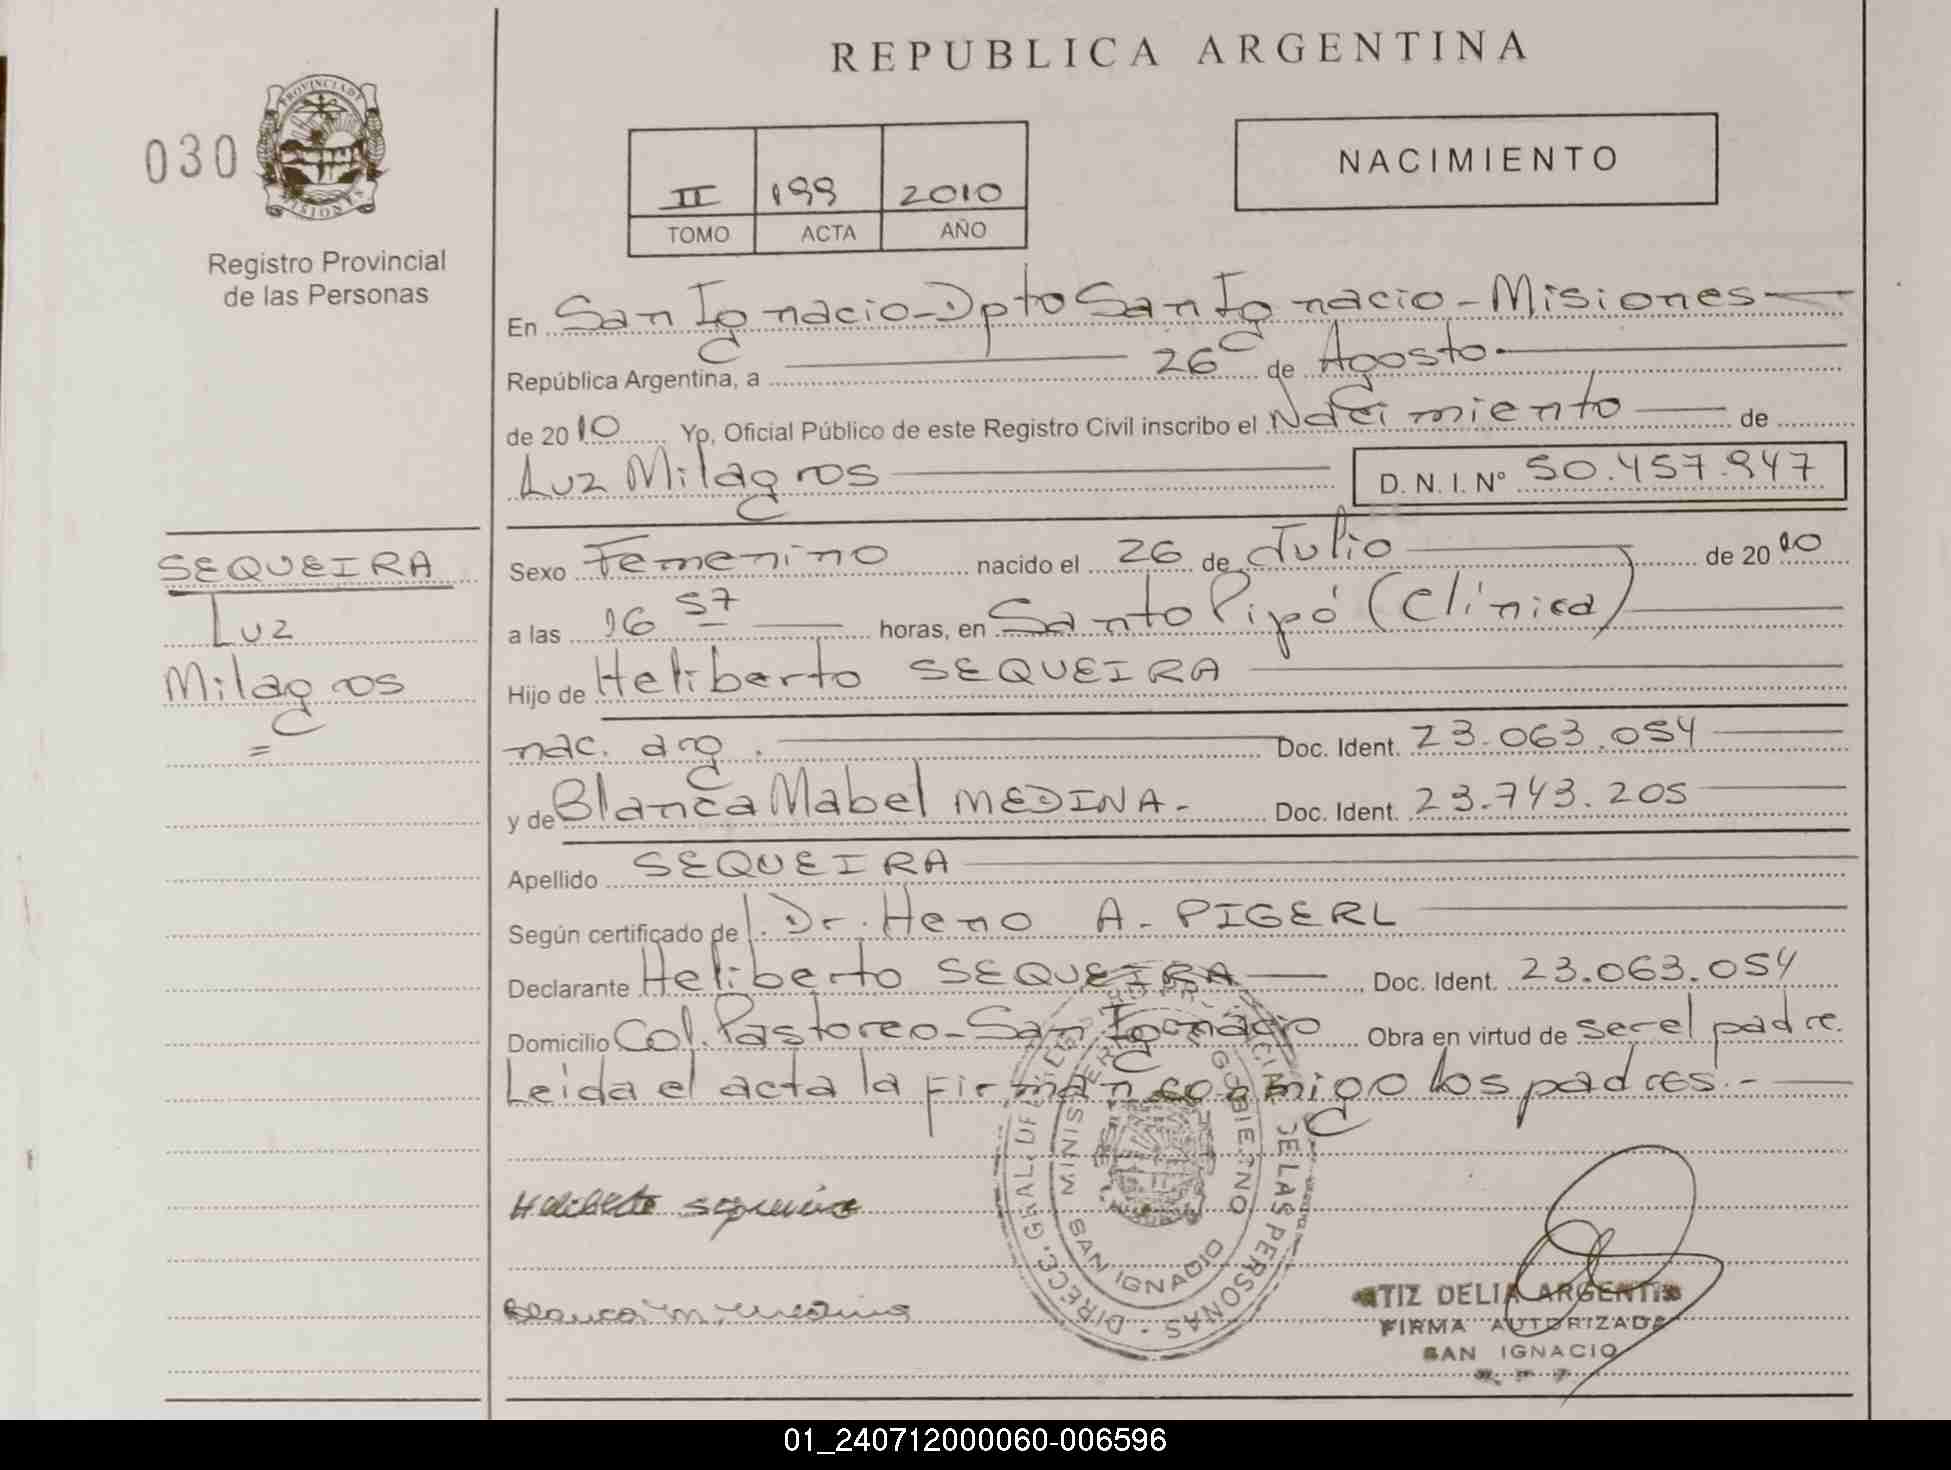 REPUBLICA ARGENTINA
030
PROVINCIA DE MISIONES
Registro Provincial
de las Personas
II 199 2010
TOMO ACTA AÑO
NACIMIENTO
En San Ignacio - Dpto San Ignacio - Misiones
República Argentina, a 26 de Agosto
de 2010 Yo, Oficial Público de este Registro Civil inscribo el Nacimiento de
Luz Milagros D.N.I. Nº 50.457.947
SEQUEIRA
Luz
Milagros
=
Sexo Femenino nacido el 26 de Julio de 2010
a las 16 57 horas, en Santo Pipó (Clínica)
Hijo de Heliberto SEQUEIRA
nac. arg. Doc. Ident. 23.063.054
y de Blanca Mabel MEDINA.- Doc. Ident. 23.743.205
Apellido SEQUEIRA
Según certificado de l. Dr. Heno A. PIGERL
Declarante Heliberto SEQUEIRA Doc. Ident. 23.063.054
Domicilio Col. Pastoreo - San Ignacio Obra en virtud de ser el padre.
Leida el acta la firman conmigo los padres.-
Heliberto sequeira
Blanca M. Medina
MINISTERIO DE GOBIERNO
SAN IGNACIO
DE LAS PERSONAS
TIZ DELIA ARGENTI
FIRMA AUTORIZADA
SAN IGNACIO
01_240712000060-006596